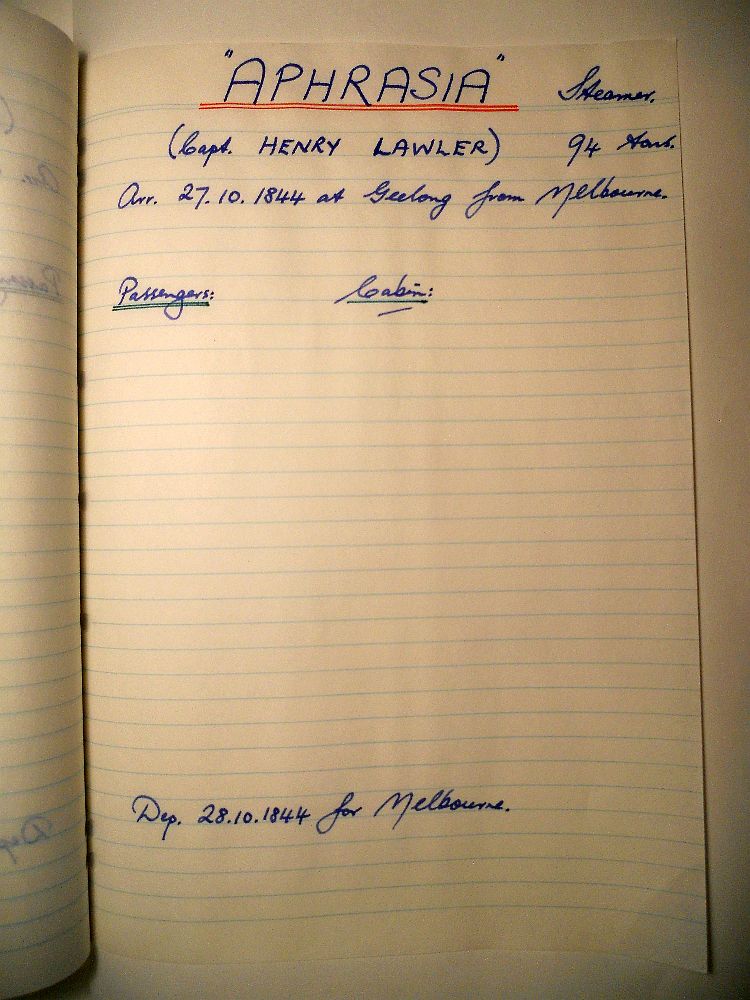 "APHRASIA" Steamer.
(Capt. HENRY LAWLER) 94 tons.
Arr. 27.10.1844 at Geelong from Melbourne.
Passengers: Cabin:
Dep. 28.10.1844 for Melbourne.